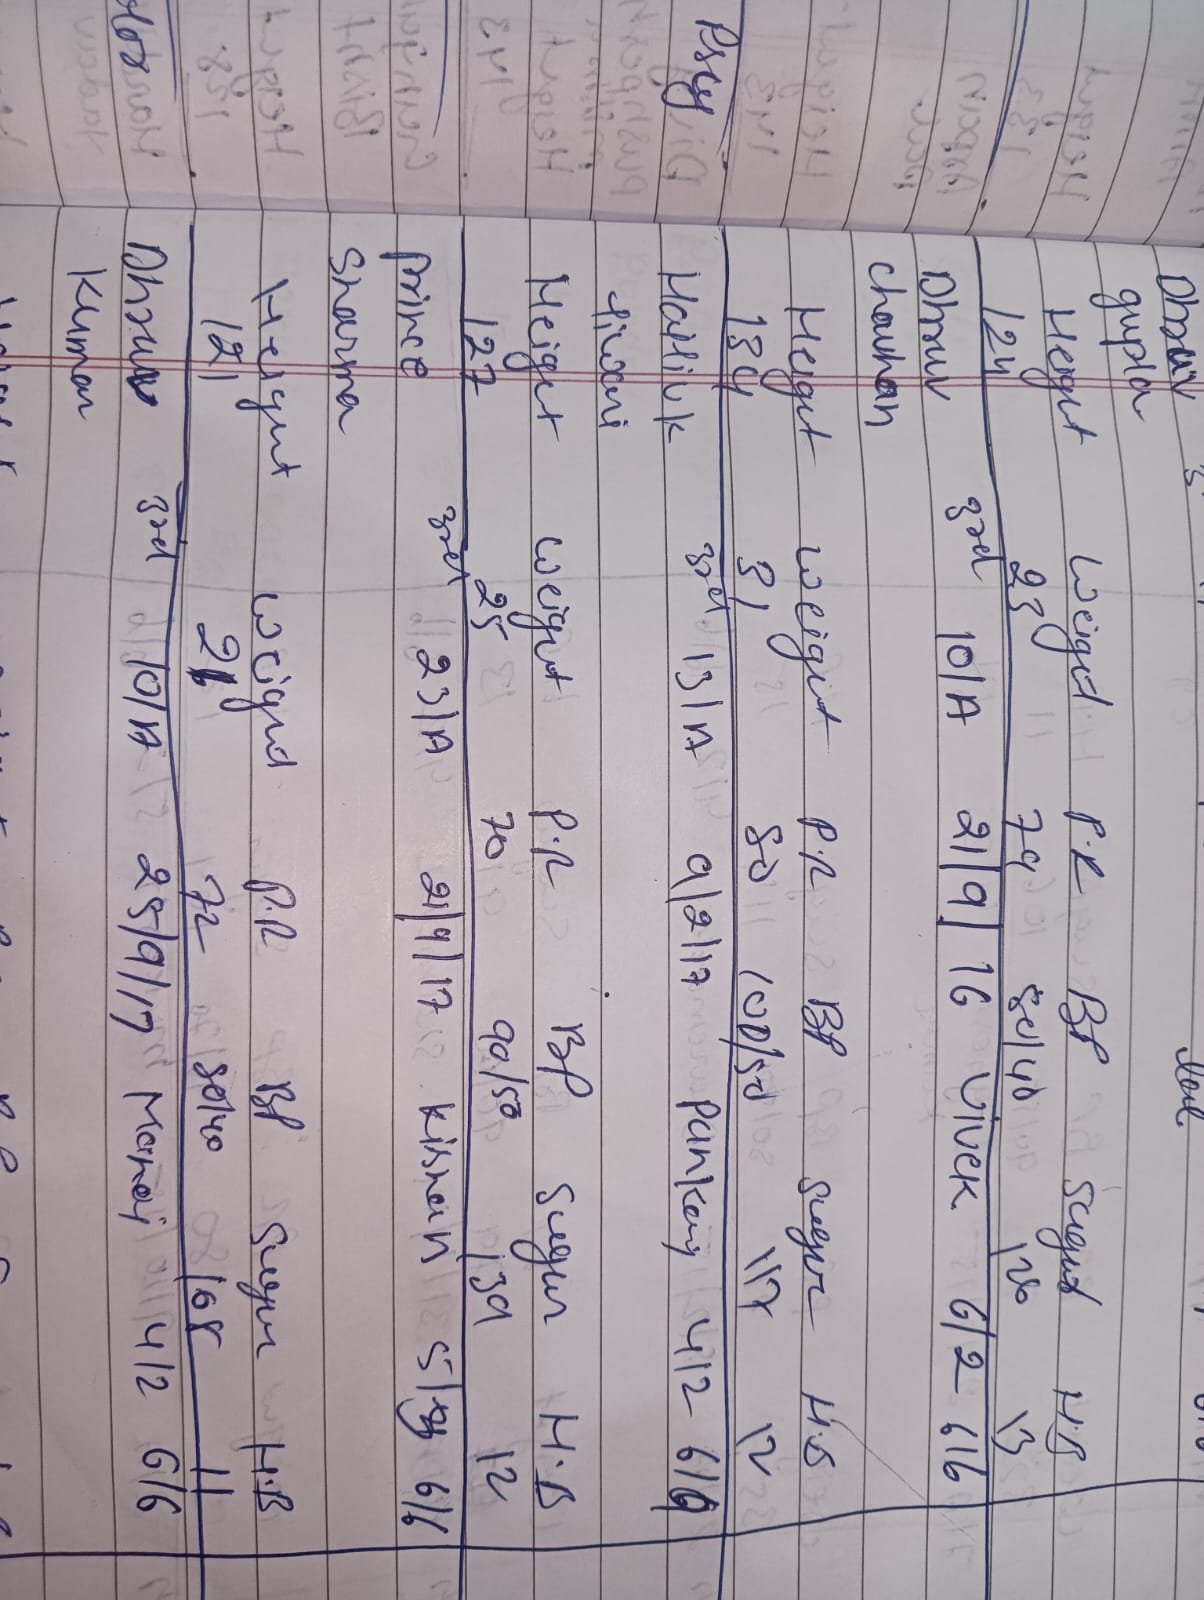 Dhruv
gupta
Height Weight P.R BP Sugar H.B
124 23 79 80/40 120 13
Dhruv 3rd 10/A 21/9/16 Vivek 6/2 6/6
chauhan
Height Weight P.R BP Sugar H.B
134 31 80 100/50 117 12
Psy
Hathik 3rd 13/A 9/2/17 Pankaj 4/2 6/6
Tiwari
Height Weight P.R BP Sugar H.B
127 25 70 90/50 139 12
Prince 3rd 23/A 21/9/17 Kishan 5/ 6/6
Sharma
Height Weight P.R BP Sugar H.B
121 21 72 80/40 168 11
Dhruv 3rd 10/A 25/9/17 Manoj 4/2 6/6
Kumar